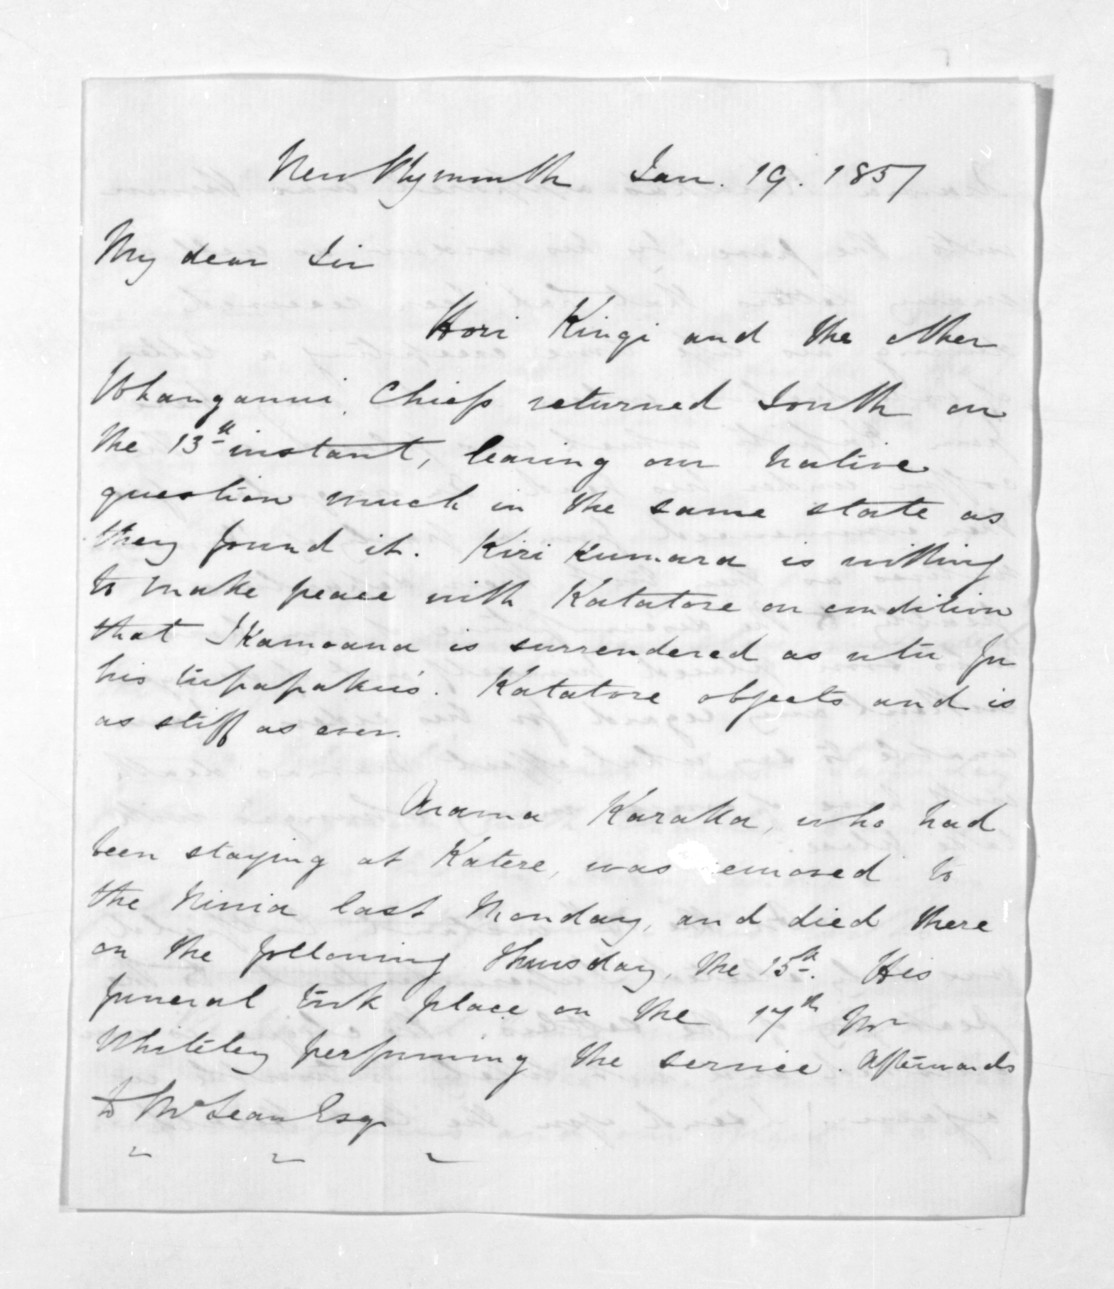 New Plymouth Jan. 19. 1857
My dear Sir
Hori Kingi and the other
Whanganui Chiefs returned South on
the 13th instant, leaving our native
question much in the same state as
they found it. Kiri kumara is willing
to make peace with Katatore on condition
that Ikamoana is surrendered as utu for
his tupapaku's. Katatore objects and is
as stiff as ever.
Arama Karaka, who had
been staying at Katere, was removed to
the Ninia last Monday, and died there
on the following Thursday, the 15th. His
funeral took place on the 17th Mr
Whiteley performing the service. Afterwards
D McLean Esqr